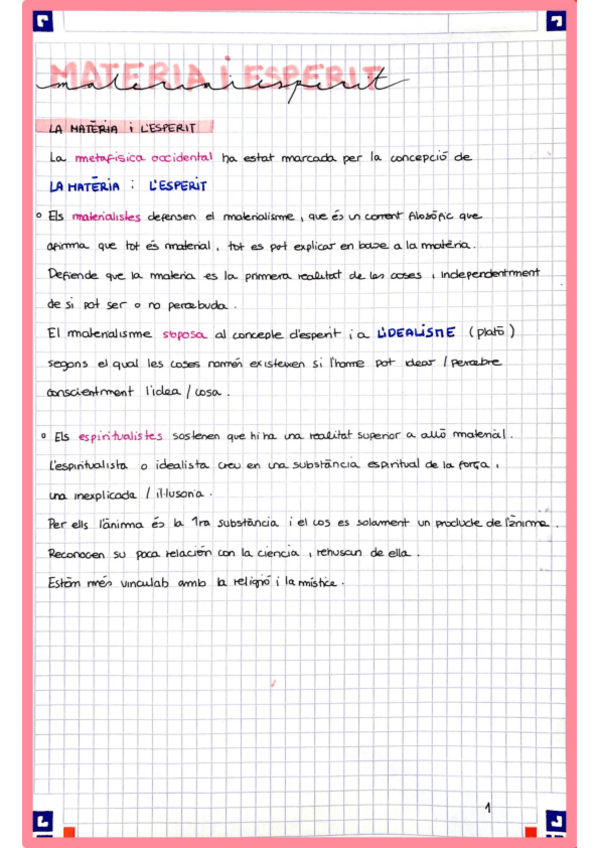 MATERIA i ESPERIT
materia i esperit
LA MATÈRIA i L'ESPERIT
La metafísica occidental ha estat marcada per la concepció de
LA MATÈRIA i L'ESPERIT
Els materialistes defensen el materialisme, que és un corrent filosòfic que
afirma que tot és material, tot es pot explicar en base a la matèria.
Defiende que la materia es la primera realitat de les coses, independentment
de si pot ser o no percebuda.
El materialisme s'oposa al concepte d'esperit i a L'IDEALISME (plató)
segons el qual les coses només existeixen si l'home pot idear / percebre
conscientment l'idea / cosa.
Els espiritualistes sostenen que hi ha una realitat superior a allò material.
L'espiritualista o idealista creu en una substància espiritual de la força,
una inexplicada / il·lusoria.
Per ells l'ànima és la 1ra substància i el cos es solament un producte de l'ànima.
Reconocen su poca relación con la ciencia, rehusan de ella.
Estàm més vinculab amb la religió i la mística.
1